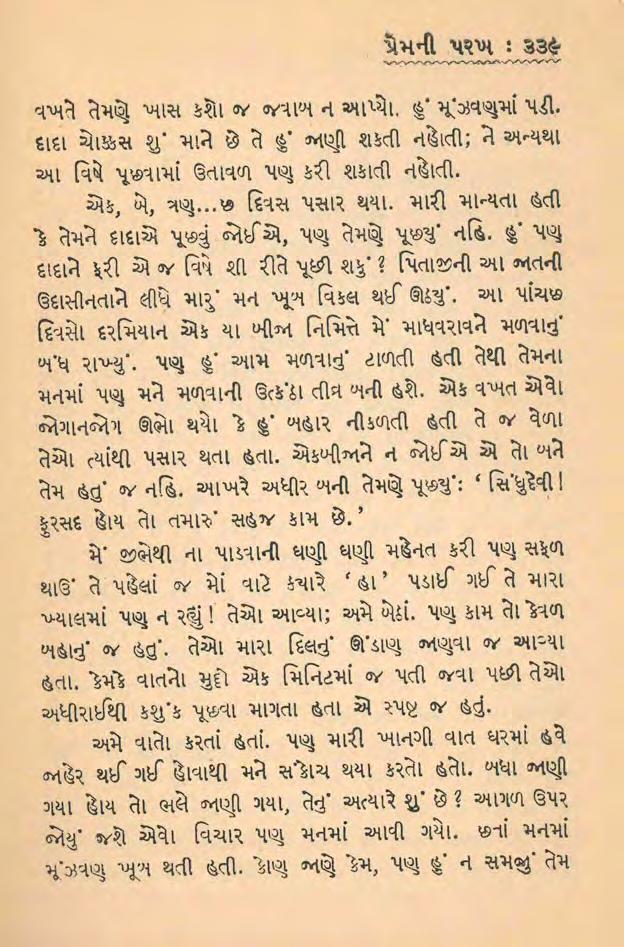 પ્રેમની પરખ : ૩૩૯
વખતે તેમણે ખાસ કશો જ જવાબ ન આપ્યો. હું મૂંઝવણમાં પડી.
દાદા ચોક્કસ શું માને છે તે હું જાણી શકતી નહોતી; ને અન્યથા
આ વિષે પૂછવામાં ઉતાવળ પણ કરી શકાતી નહોતી.
એક, બે, ત્રણ...છ દિવસ પસાર થયા. મારી માન્યતા હતી
કે તેમને દાદાએ પૂછવું જોઈએ, પણ તેમણે પૂછ્યું નહિ. હું પણ
દાદાને ફરી એ જ વિષે શી રીતે પૂછી શકું ? પિતાજીની આ જાતની
ઉદાસીનતાને લીધે મારું મન ખૂબ વિકલ થઈ ઊઠ્યું. આ પાંચછ
દિવસો દરમિયાન એક યા બીજા નિમિત્તે મેં માધવરાવને મળવાનું
બંધ રાખ્યું. પણ હું આમ મળવાનું ટાળતી હતી તેથી તેમના
મનમાં પણ મને મળવાની ઉત્કંઠા તીવ્ર બની હશે. એક વખત એવો
જોગાનજોગ ઊભો થયો કે હું બહાર નીકળતી હતી તે જ વેળા
તેઓ ત્યાંથી પસાર થતા હતા. એકબીજાને ન જોઈએ એ તો બને
તેમ હતું જ નહિ. આખરે અધીર બની તેમણે પૂછ્યું: ‘ સિંધુદેવી !
ફુરસદ હોય તો તમારું સહજ કામ છે.’
મેં જીભેથી ના પાડવાની ઘણી ઘણી મહેનત કરી પણ સફળ
થાઉં તે પહેલાં જ મોં વાટે ક્યારે ‘ હા ’ પડાઈ ગઈ તે મારા
ખ્યાલમાં પણ ન રહ્યું ! તેઓ આવ્યા; અમે બેઠાં. પણ કામ તો કેવળ
બહાનું જ હતું. તેઓ મારા દિલનું ઊંડાણ જાણવા જ આવ્યા
હતા. કેમકે વાતનો મુદ્દો એક મિનિટમાં જ પતી જવા પછી તેઓ
અધીરાઈથી કશુંક પૂછવા માગતા હતા એ સ્પષ્ટ જ હતું.
અમે વાતો કરતાં હતાં. પણ મારી ખાનગી વાત ઘરમાં હવે
જાહેર થઈ ગઈ હોવાથી મને સંકોચ થયા કરતો હતો. બધા જાણી
ગયા હોય તો ભલે જાણી ગયા, તેનું અત્યારે શું છે ? આગળ ઉપર
જોયું જશે એવો વિચાર પણ મનમાં આવી ગયો. છતાં મનમાં
મૂંઝવણ ખૂબ થતી હતી. કોણ જાણે કેમ, પણ હું ન સમજું તેમ